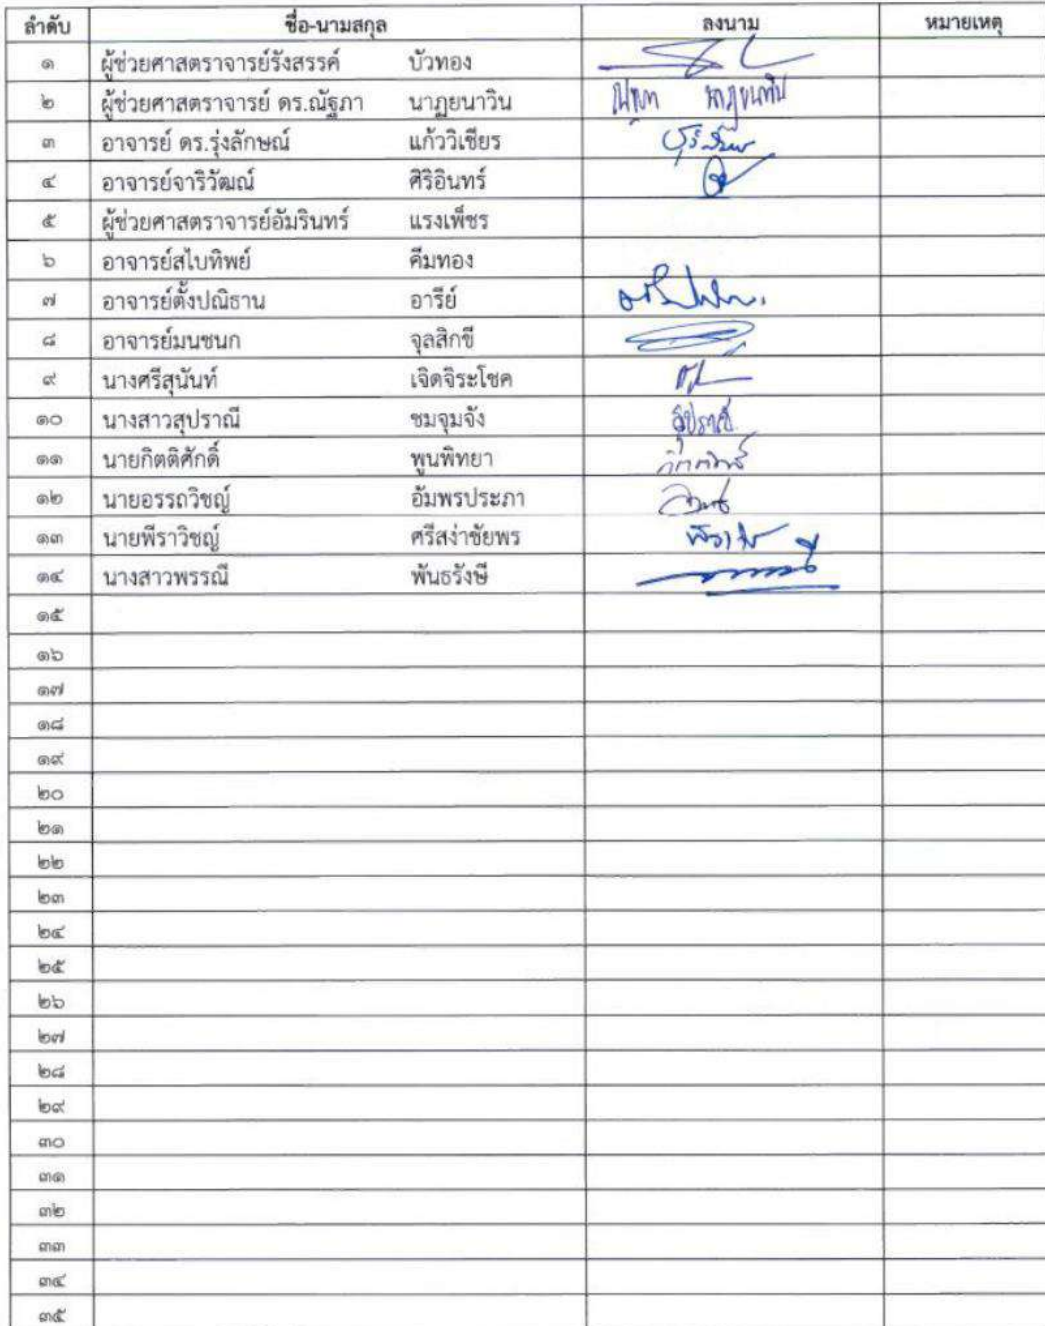 ลำดับ ชื่อ-นามสกุล ลงนาม หมายเหตุ
๑ ผู้ช่วยศาสตราจารย์รังสรรค์ บัวทอง
๒ ผู้ช่วยศาสตราจารย์ ดร.ณัฐภา นาฏยนาวิน
๓ อาจารย์ ดร.รุ่งลักษณ์ แก้ววิเชียร
๔ อาจารย์จาริวัฒณ์ ศิริอินทร์
๕ ผู้ช่วยศาสตราจารย์อัมรินทร์ แรงเพ็ชร
๖ อาจารย์สไบทิพย์ คีมทอง
๗ อาจารย์ตั้งปณิธาน อารีย์
๘ อาจารย์มนชนก จุลสิกขี
๙ นางศรีสุนันท์ เจิดจิระโชค
๑๐ นางสาวสุปราณี ชมจุมจัง
๑๑ นายกิตติศักดิ์ พูนพิทยา
๑๒ นายอรรถวิชญ์ อัมพรประภา
๑๓ นายพีราวิชญ์ ศรีสง่าชัยพร
๑๔ นางสาวพรรณี พันธรังษี
๑๕
๑๖
๑๗
๑๘
๑๙
๒๐
๒๑
๒๒
๒๓
๒๔
๒๕
๒๖
๒๗
๒๘
๒๙
๓๐
๓๑
๓๒
๓๓
๓๔
๓๕